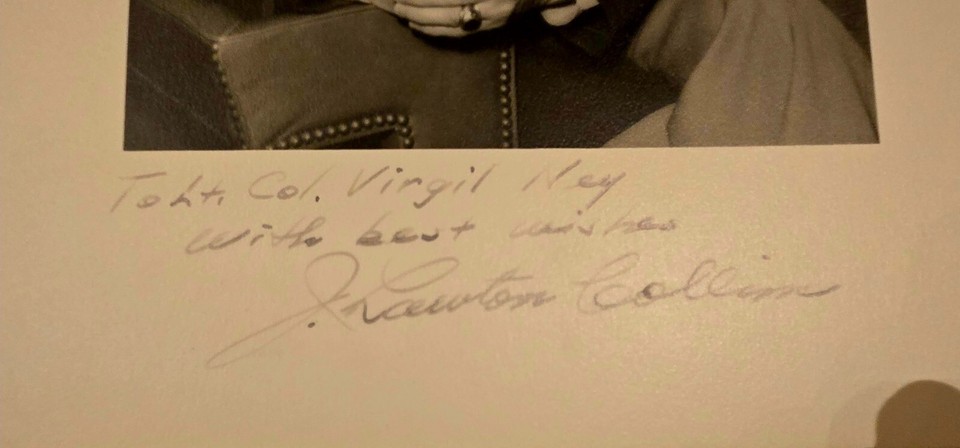 To Lt. Col. Virgil Ney
With best wishes
J. Lawton Collins